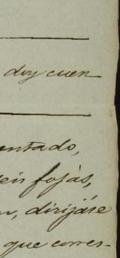 doy cuen
entado,
eis fojas,
dirijáse
que corres-